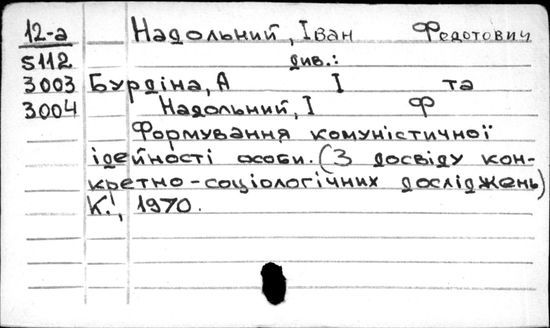 12-а Надольний, Іван Федотович
5112 див.:
3003 Бурдіна, А І та
3004 Надольний, І Ф
Формування комуністичної
ідейності особи. (З досвіду кон-
кретно-соціологічних досліджень)
К., 1970.